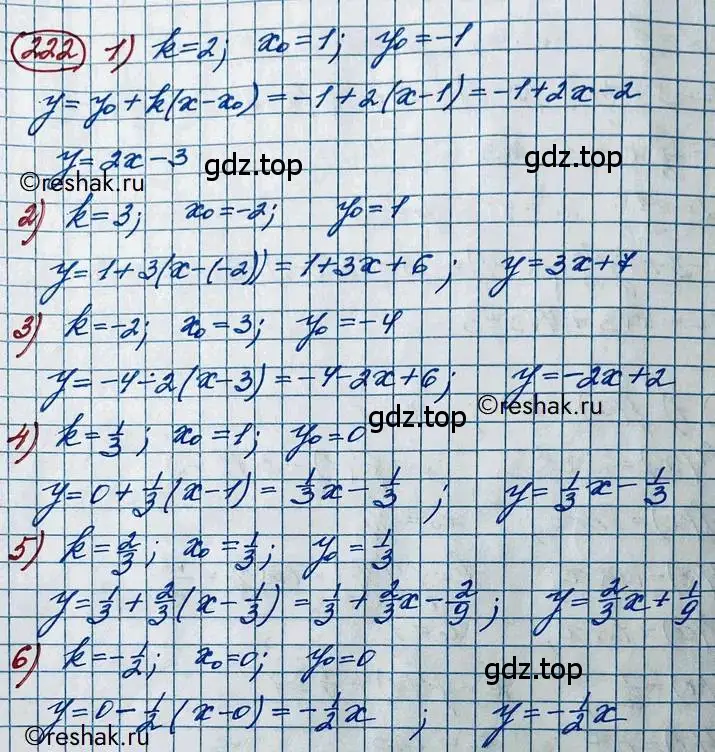 222 1) k=2; x₀=1; y₀=-1
y=y₀+k(x-x₀)=-1+2(x-1)=-1+2x-2
y=2x-3 gdz.top gdz.top
©reshak.ru
2) k=3; x₀=-2; y₀=1
y=1+3(x-(-2))=1+3x+6; y=3x+7
3) k=-2; x₀=3; y₀=-4
y=-4-2(x-3)=-4-2x+6; y=-2x+2
gdz.top ©reshak.ru
4) k=1/3; x₀=1; y₀=0
y=0+1/3(x-1)=1/3x-1/3; y=1/3x-1/3
5) k=2/3; x₀=1/3; y₀=1/3
y=1/3+2/3(x-1/3)=1/3+2/3x-2/9; y=2/3x+1/9
6) k=-1/2; x₀=0; y₀=0 gdz.top
y=0-1/2(x-0)=-1/2x; y=-1/2x
©reshak.ru